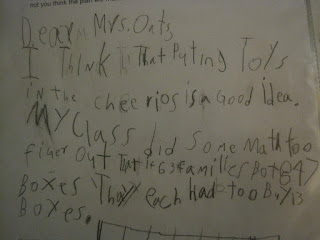 not you think the plan will
Dear Mrs. Oats
I Think That Puting Toys
in the cheerios is a Good idea.
My Class did Some Math too
Figer Out That if 63 Familles Bot 847
Boxes They each had too Buy 13
Boxes.